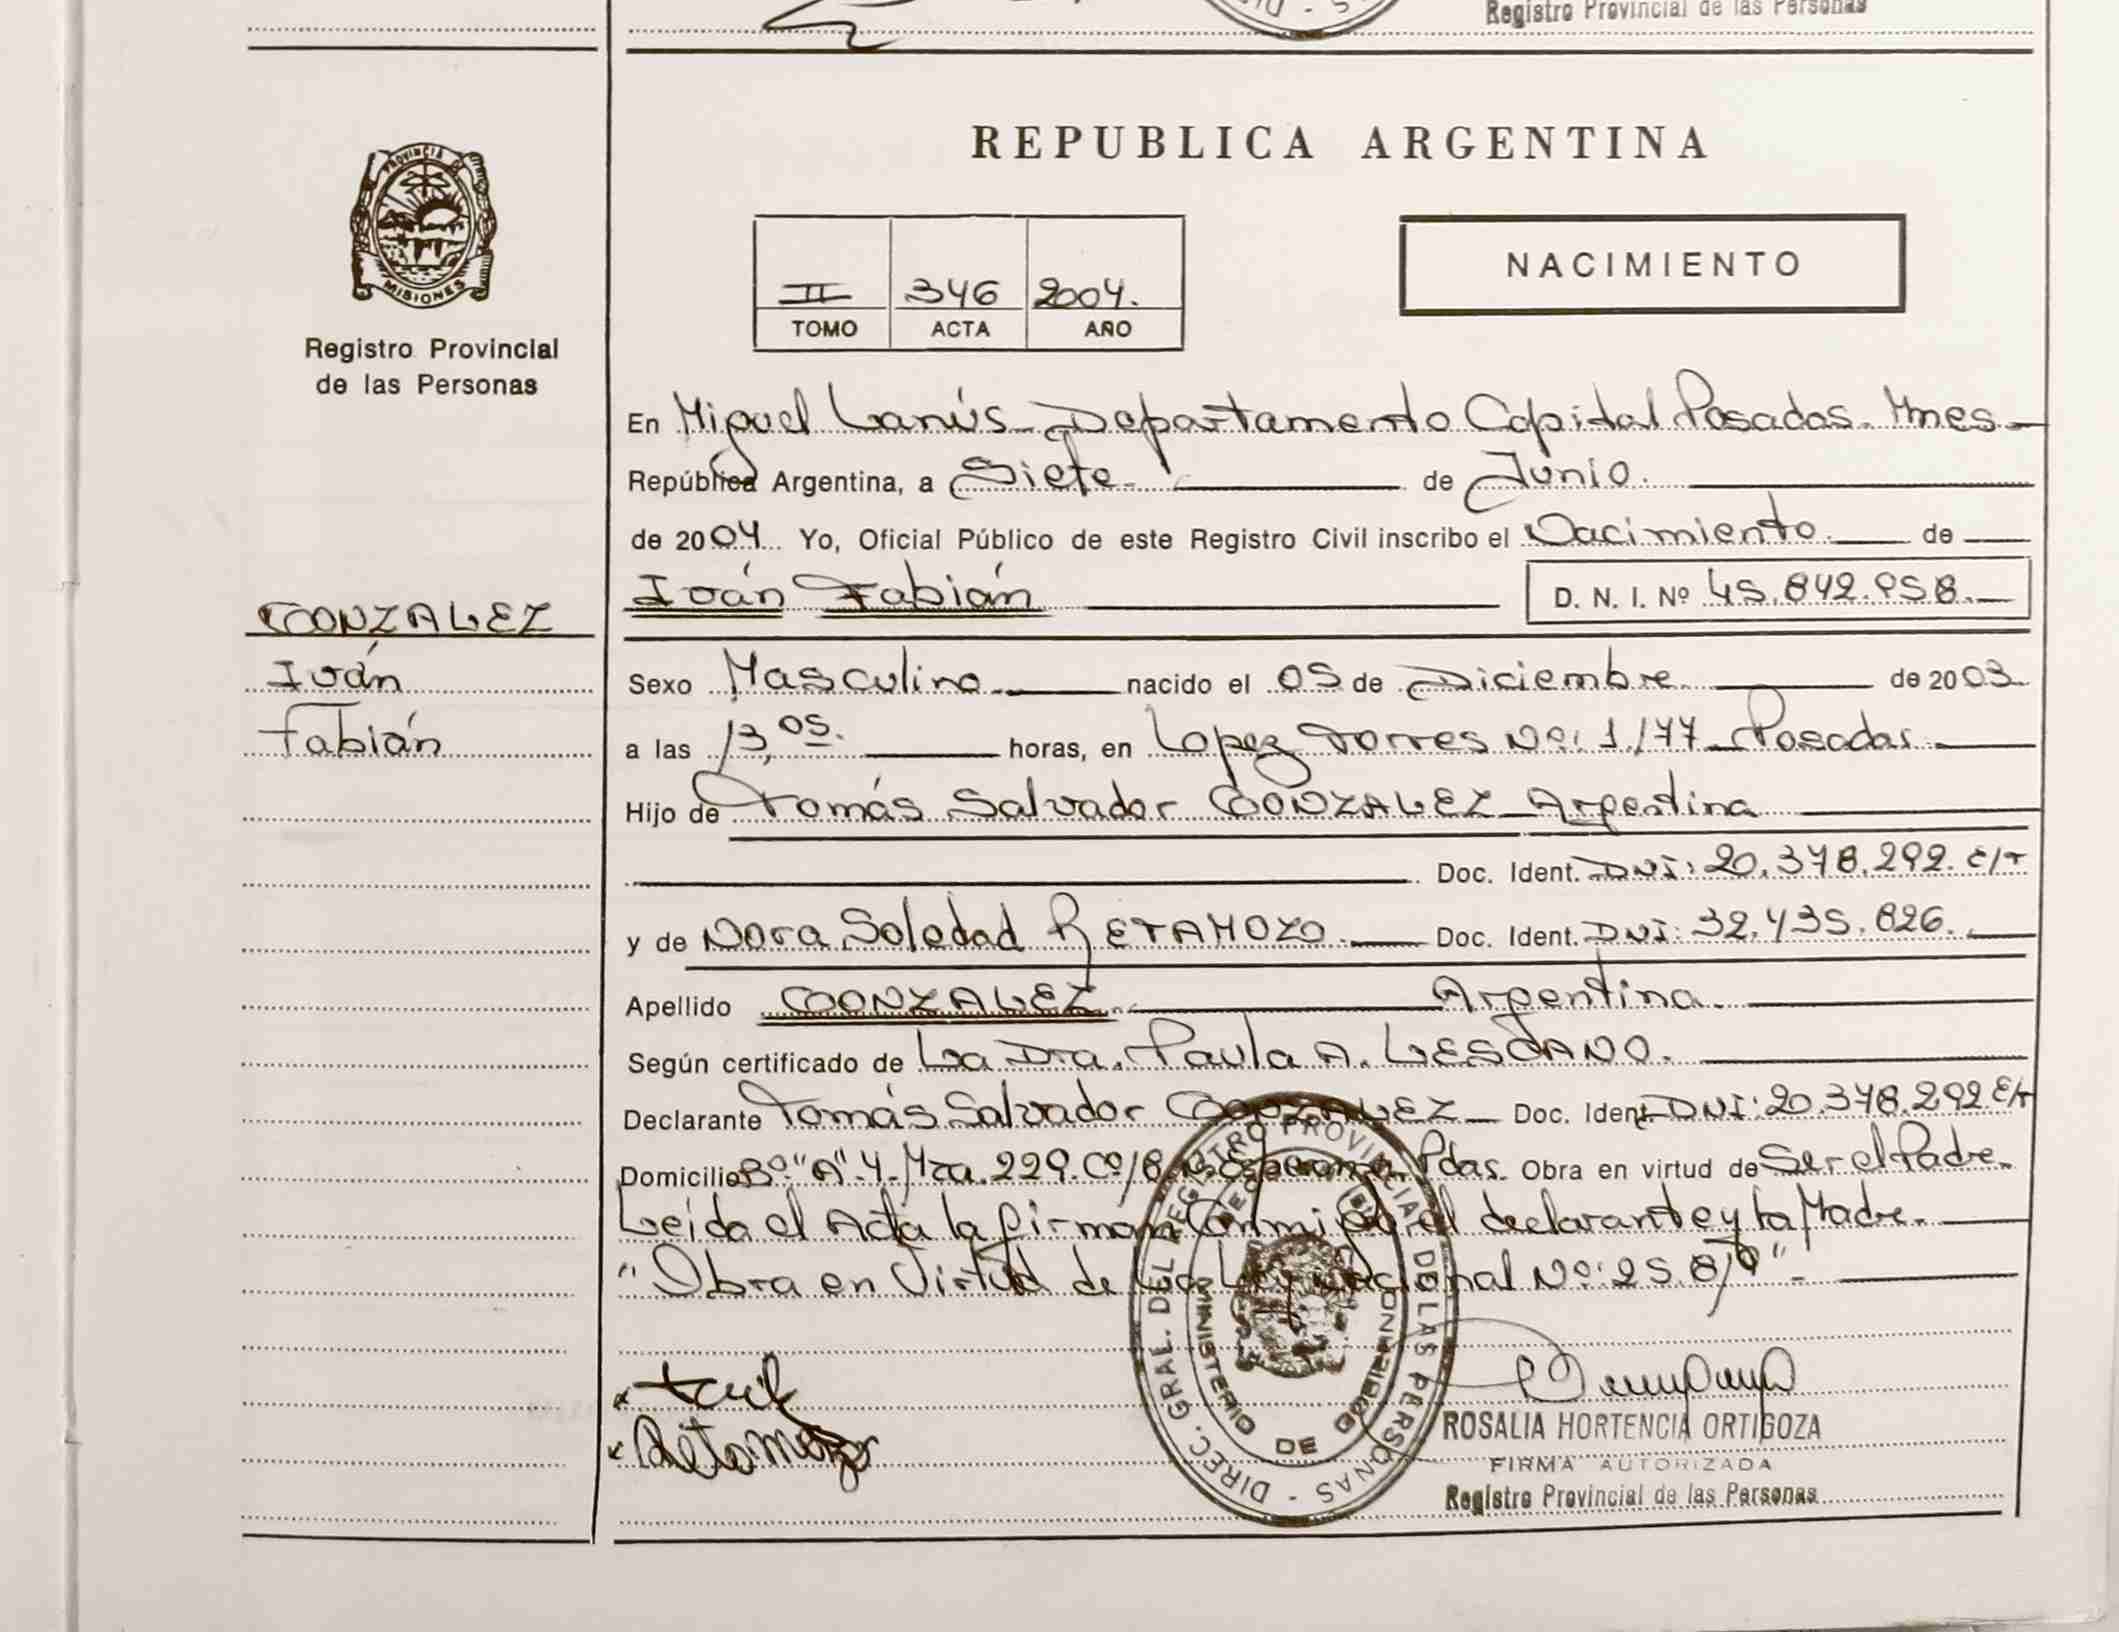 Registro Provincial de las Personas
PROVINCIA DE
MISIONES
Registro Provincial
de las Personas
REPUBLICA ARGENTINA
II 346 2004.
TOMO ACTA AÑO
NACIMIENTO
En Miguel Lanús Departamento Capital Posadas. Mnes
República Argentina, a Siete de Junio.
de 2004 Yo, Oficial Público de este Registro Civil inscribo el Nacimiento de
Iván Fabián D. N. I. Nº 45.842.958.
GONZALEZ
Iván
Fabián
Sexo Masculino nacido el 05 de Diciembre de 2003
a las 13,05. horas, en Lopez Torres Nº: 1177 Posadas
Hijo de Tomás Salvador GONZALEZ Argentina
Doc. Ident. DNI: 20.378.292. E/T
y de Nora Soledad RETAMOZO. Doc. Ident. DNI: 32.435.826.
Apellido GONZALEZ Argentina
Según certificado de La Dra. Paula A. LESCANO.
Declarante Tomás Salvador GONZALEZ Doc. Ident. DNI: 20.378.292 E/T
Domicilio Bº "A" 4. Mza. 229. Pdas. Obra en virtud de Ser el Padre.
Leida el Acta la firman Conmigo el declarante y la Madre.
"Obra en Virtud de la Ley Nacional Nº: 25.819"
DIREC. GRAL. DEL REGISTRO PROVINCIAL DE LAS PERSONAS
MINISTERIO DE GOBIERNO
Retamozo
ROSALIA HORTENCIA ORTIGOZA
FIRMA AUTORIZADA
Registro Provincial de las Personas